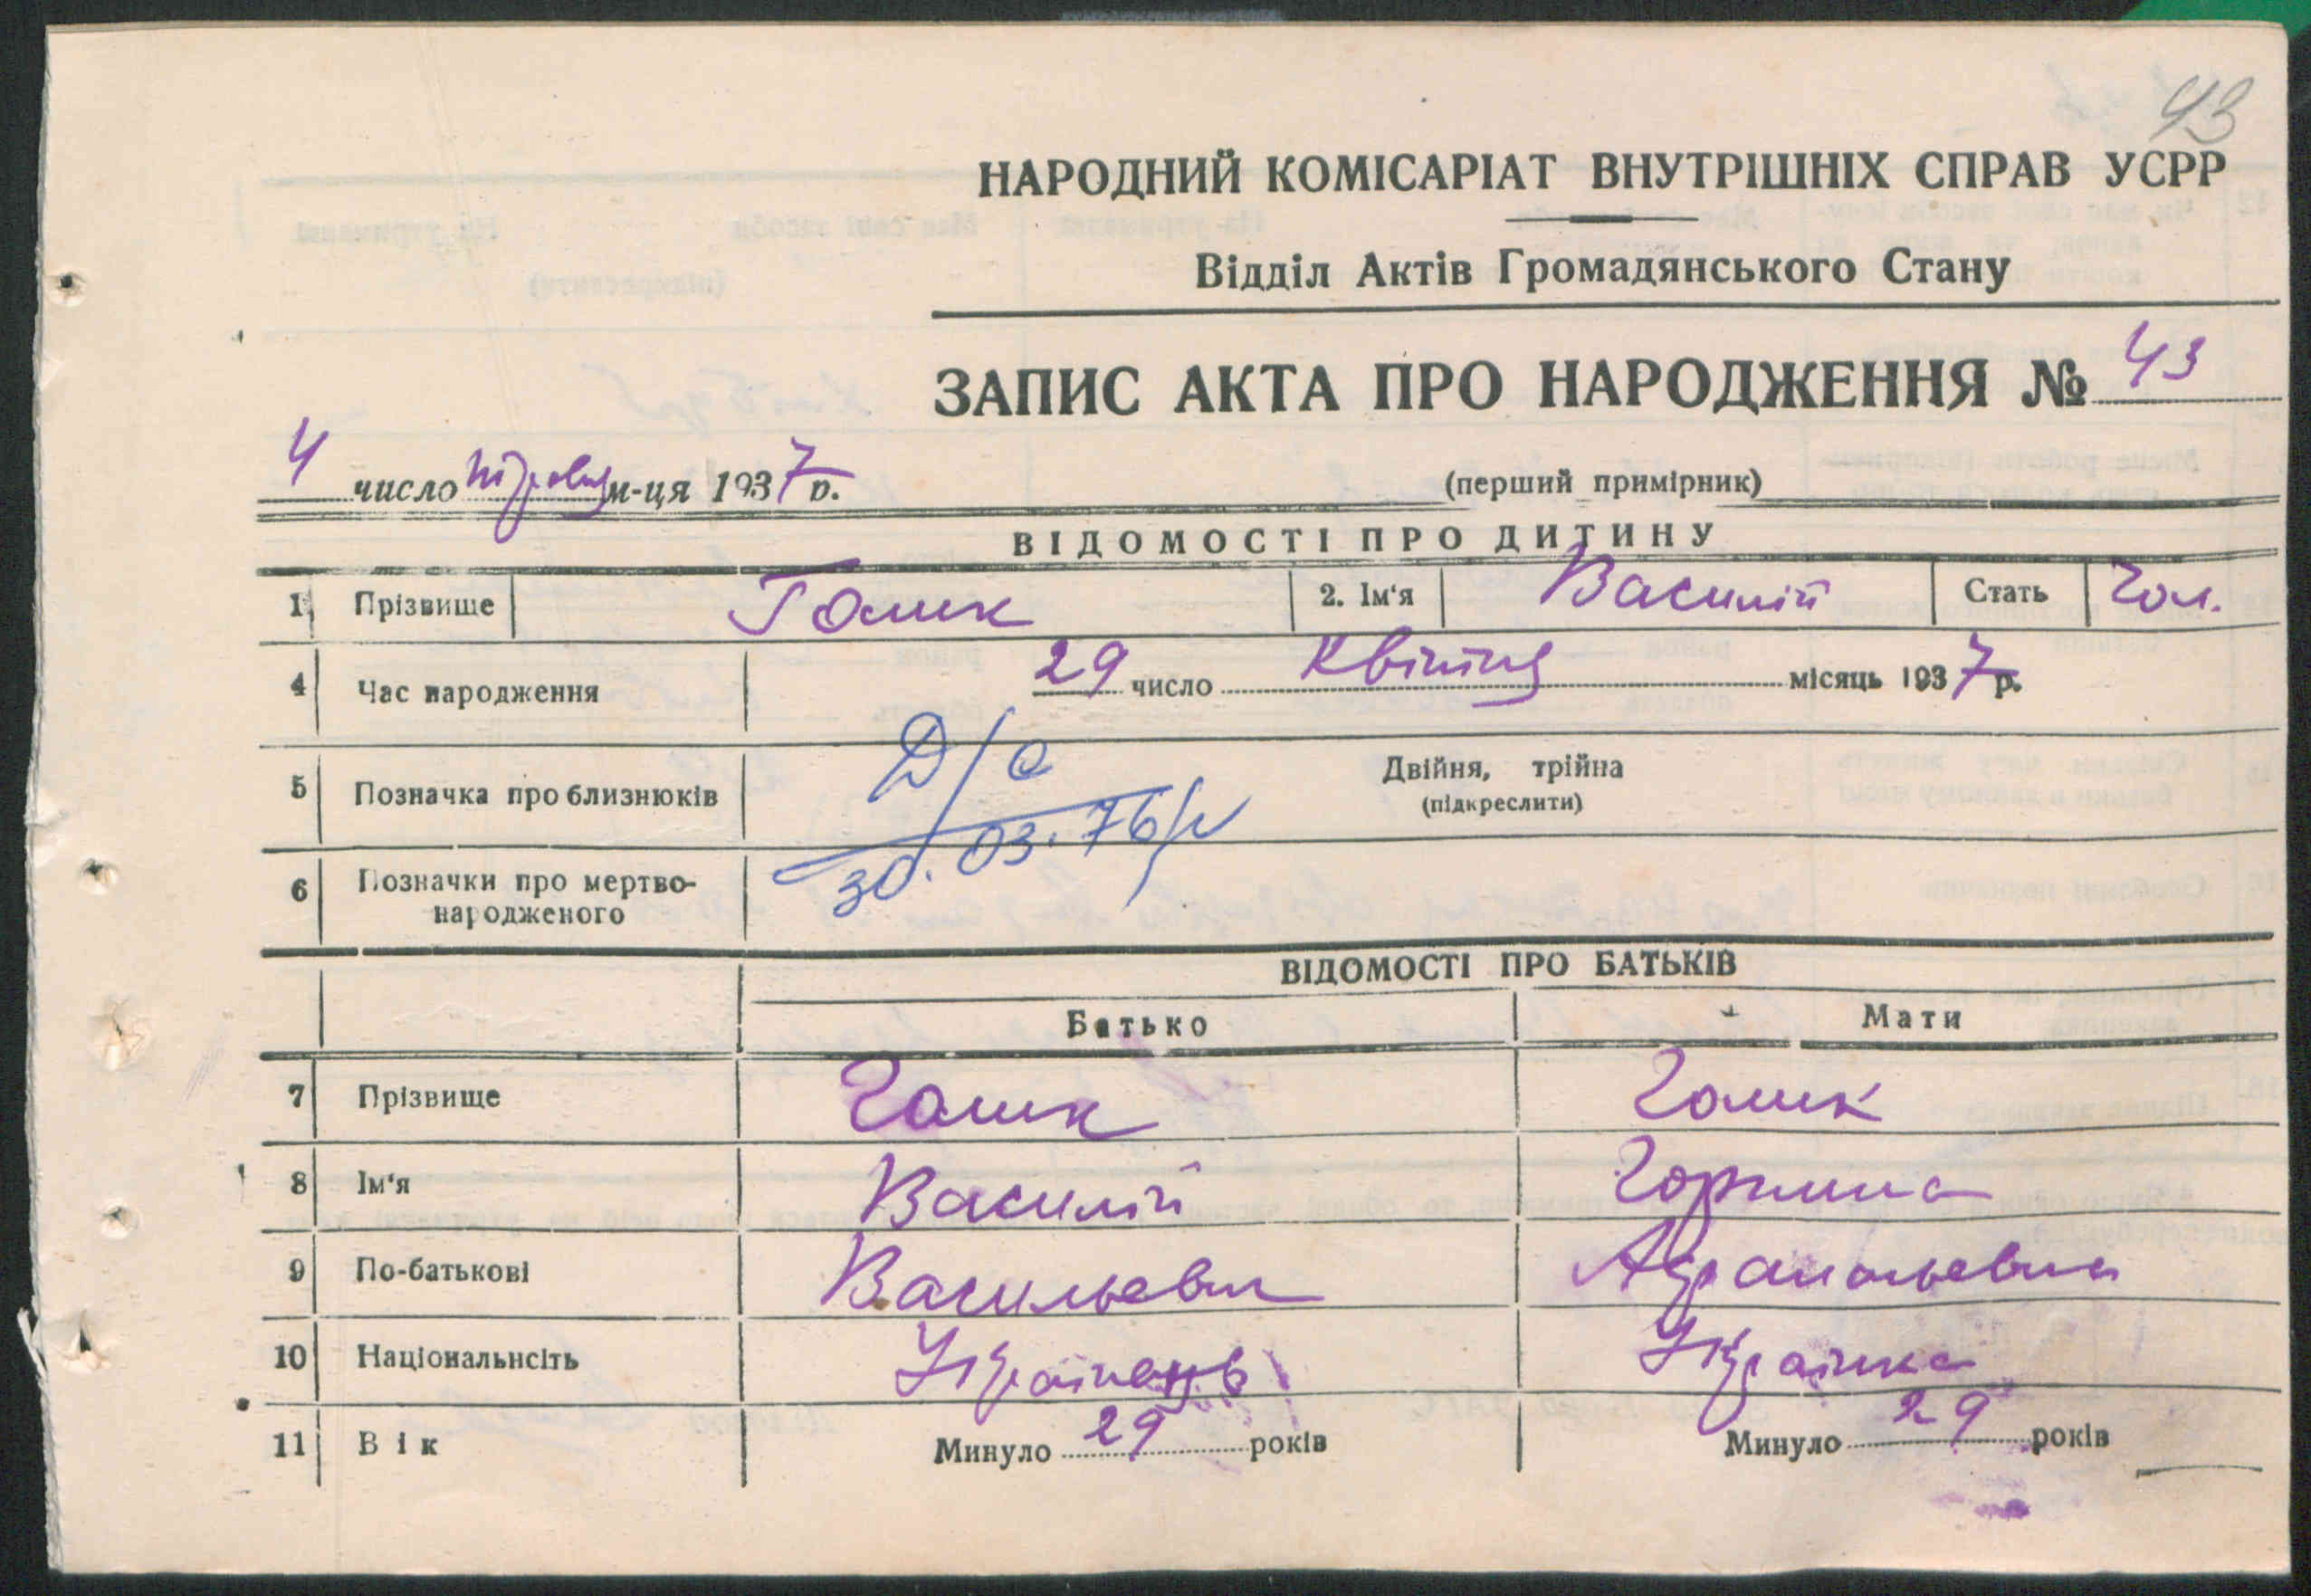 43
НАРОДНИЙ КОМІСАРІАТ ВНУТРІШНІХ СПРАВ УСРР
Відділ Актів Громадянського Стану
ЗАПИС АКТА ПРО НАРОДЖЕННЯ № 43
4 число м-ця 1937 р.
(перший примірник)
ВІДОМОСТІ ПРО ДИТИНУ
1 Прізвище Голик 2. Ім'я Василій Стать Чол.
4 Час народження 29 число Квітня місяць 1937 р.
5 Позначка про близнюків Двійня, трійна
(підкреслити)
Д/с
30.03.76р
6 Позначки про мертво-
народженого
ВІДОМОСТІ ПРО БАТЬКІВ
Батько Мати
7 Прізвище Голик Голик
8 Ім'я Василій Горпина
9 По-батькові Васильевич
10 Національнсіть Українець Українка
11 Вік Минуло 29 років Минуло 29 років